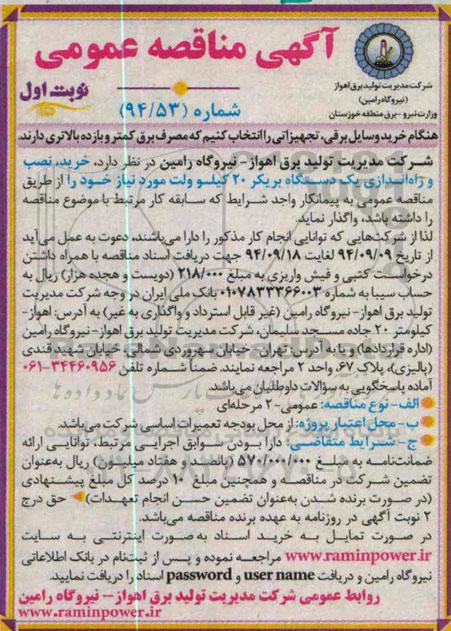 آگهی مناقصه عمومی
شرکت مدیریت تولید برق اهواز
(نیروگاه رامین)
وزارت نیرو - برق منطقه خوزستان
نوبت اول
شماره (۹۴/۵۳)
هنگام خرید وسایل برقی، تجهیزاتی را انتخاب کنیم که مصرف برق کمتر و بازده بالاتری دارند.
شرکت مدیریت تولید برق اهواز - نیروگاه رامین در نظر دارد، خرید، نصب
و راه‌اندازی یک دستگاه بریکر ۲۰ کیلو ولت مورد نیاز خود را از طریق
مناقصه عمومی به پیمانکار واجد شرایط که سابقه کار مرتبط با موضوع مناقصه
را داشته باشد، واگذار نماید.
لذا از شرکت‌هایی که توانایی انجام کار مذکور را دارا می‌باشند، دعوت به عمل می‌آید
از تاریخ ۹۴/۰۹/۰۹ لغایت ۹۴/۰۹/۱۸ جهت دریافت اسناد مناقصه با همراه داشتن
درخواست کتبی و فیش واریزی به مبلغ ۲۱۸/۰۰۰ (دویست و هجده هزار) ریال به
حساب سیبا به شماره ۰۱۰۷۸۳۳۳۶۶۰۰۳ بانک ملی ایران در وجه شرکت مدیریت
تولید برق اهواز - نیروگاه رامین (غیر قابل استرداد و واگذاری به غیر) به آدرس: اهواز-
کیلومتر ۲۰ جاده مسجد سلیمان، شرکت مدیریت تولید برق اهواز - نیروگاه رامین
(اداره قراردادها) و یا به آدرس: تهران - خیابان سهروردی شمالی، خیابان شهید قندی
(پالیزی)، پلاک ۶۷، واحد ۲ مراجعه نمایند. ضمناً شماره تلفن ۳۴۴۶۰۹۵۶-۰۶۱
آماده پاسخگویی به سؤالات داوطلبان می‌باشد.
الف - نوع مناقصه: عمومی - ۲ مرحله‌ای
ب - محل اعتبار پروژه: از محل بودجه تعمیرات اساسی شرکت می‌باشد.
ج - شرایط متقاضی: دارا بودن سوابق اجرایی مرتبط، توانایی ارائه
ضمانت‌نامه به مبلغ ۵۷۰/۰۰۰/۰۰۰ (پانصد و هفتاد میلیون) ریال به‌عنوان
تضمین شرکت در مناقصه و همچنین مبلغ ۱۰ درصد کل مبلغ پیشنهادی
(در صورت برنده شدن به‌عنوان تضمین حسن انجام تعهدات) حق درج
۲ نوبت آگهی در روزنامه به عهده برنده مناقصه می‌باشد.
در صورت تمایل به خرید اسناد به صورت اینترنتی به سایت
www.raminpower.ir مراجعه نموده و پس از ثبت‌نام در بانک اطلاعاتی
نیروگاه رامین و دریافت user name و password اسناد را دریافت نمایید.
روابط عمومی شرکت مدیریت تولید برق اهواز - نیروگاه رامین
www.raminpower.ir